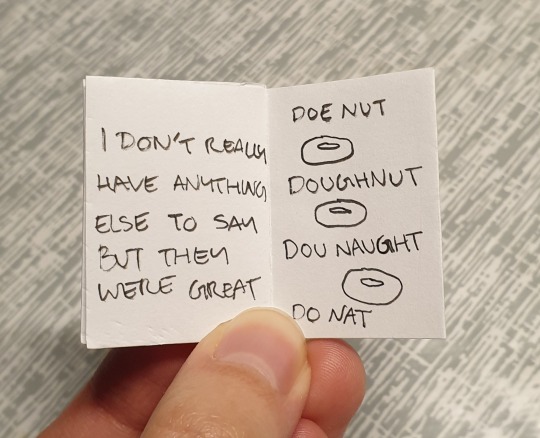 I DON'T REALLY
HAVE ANYTHING
ELSE TO SAY
BUT THEY
WERE GREAT
DOE NUT
DOUGHNUT
DOU NAUGHT
DO NAT